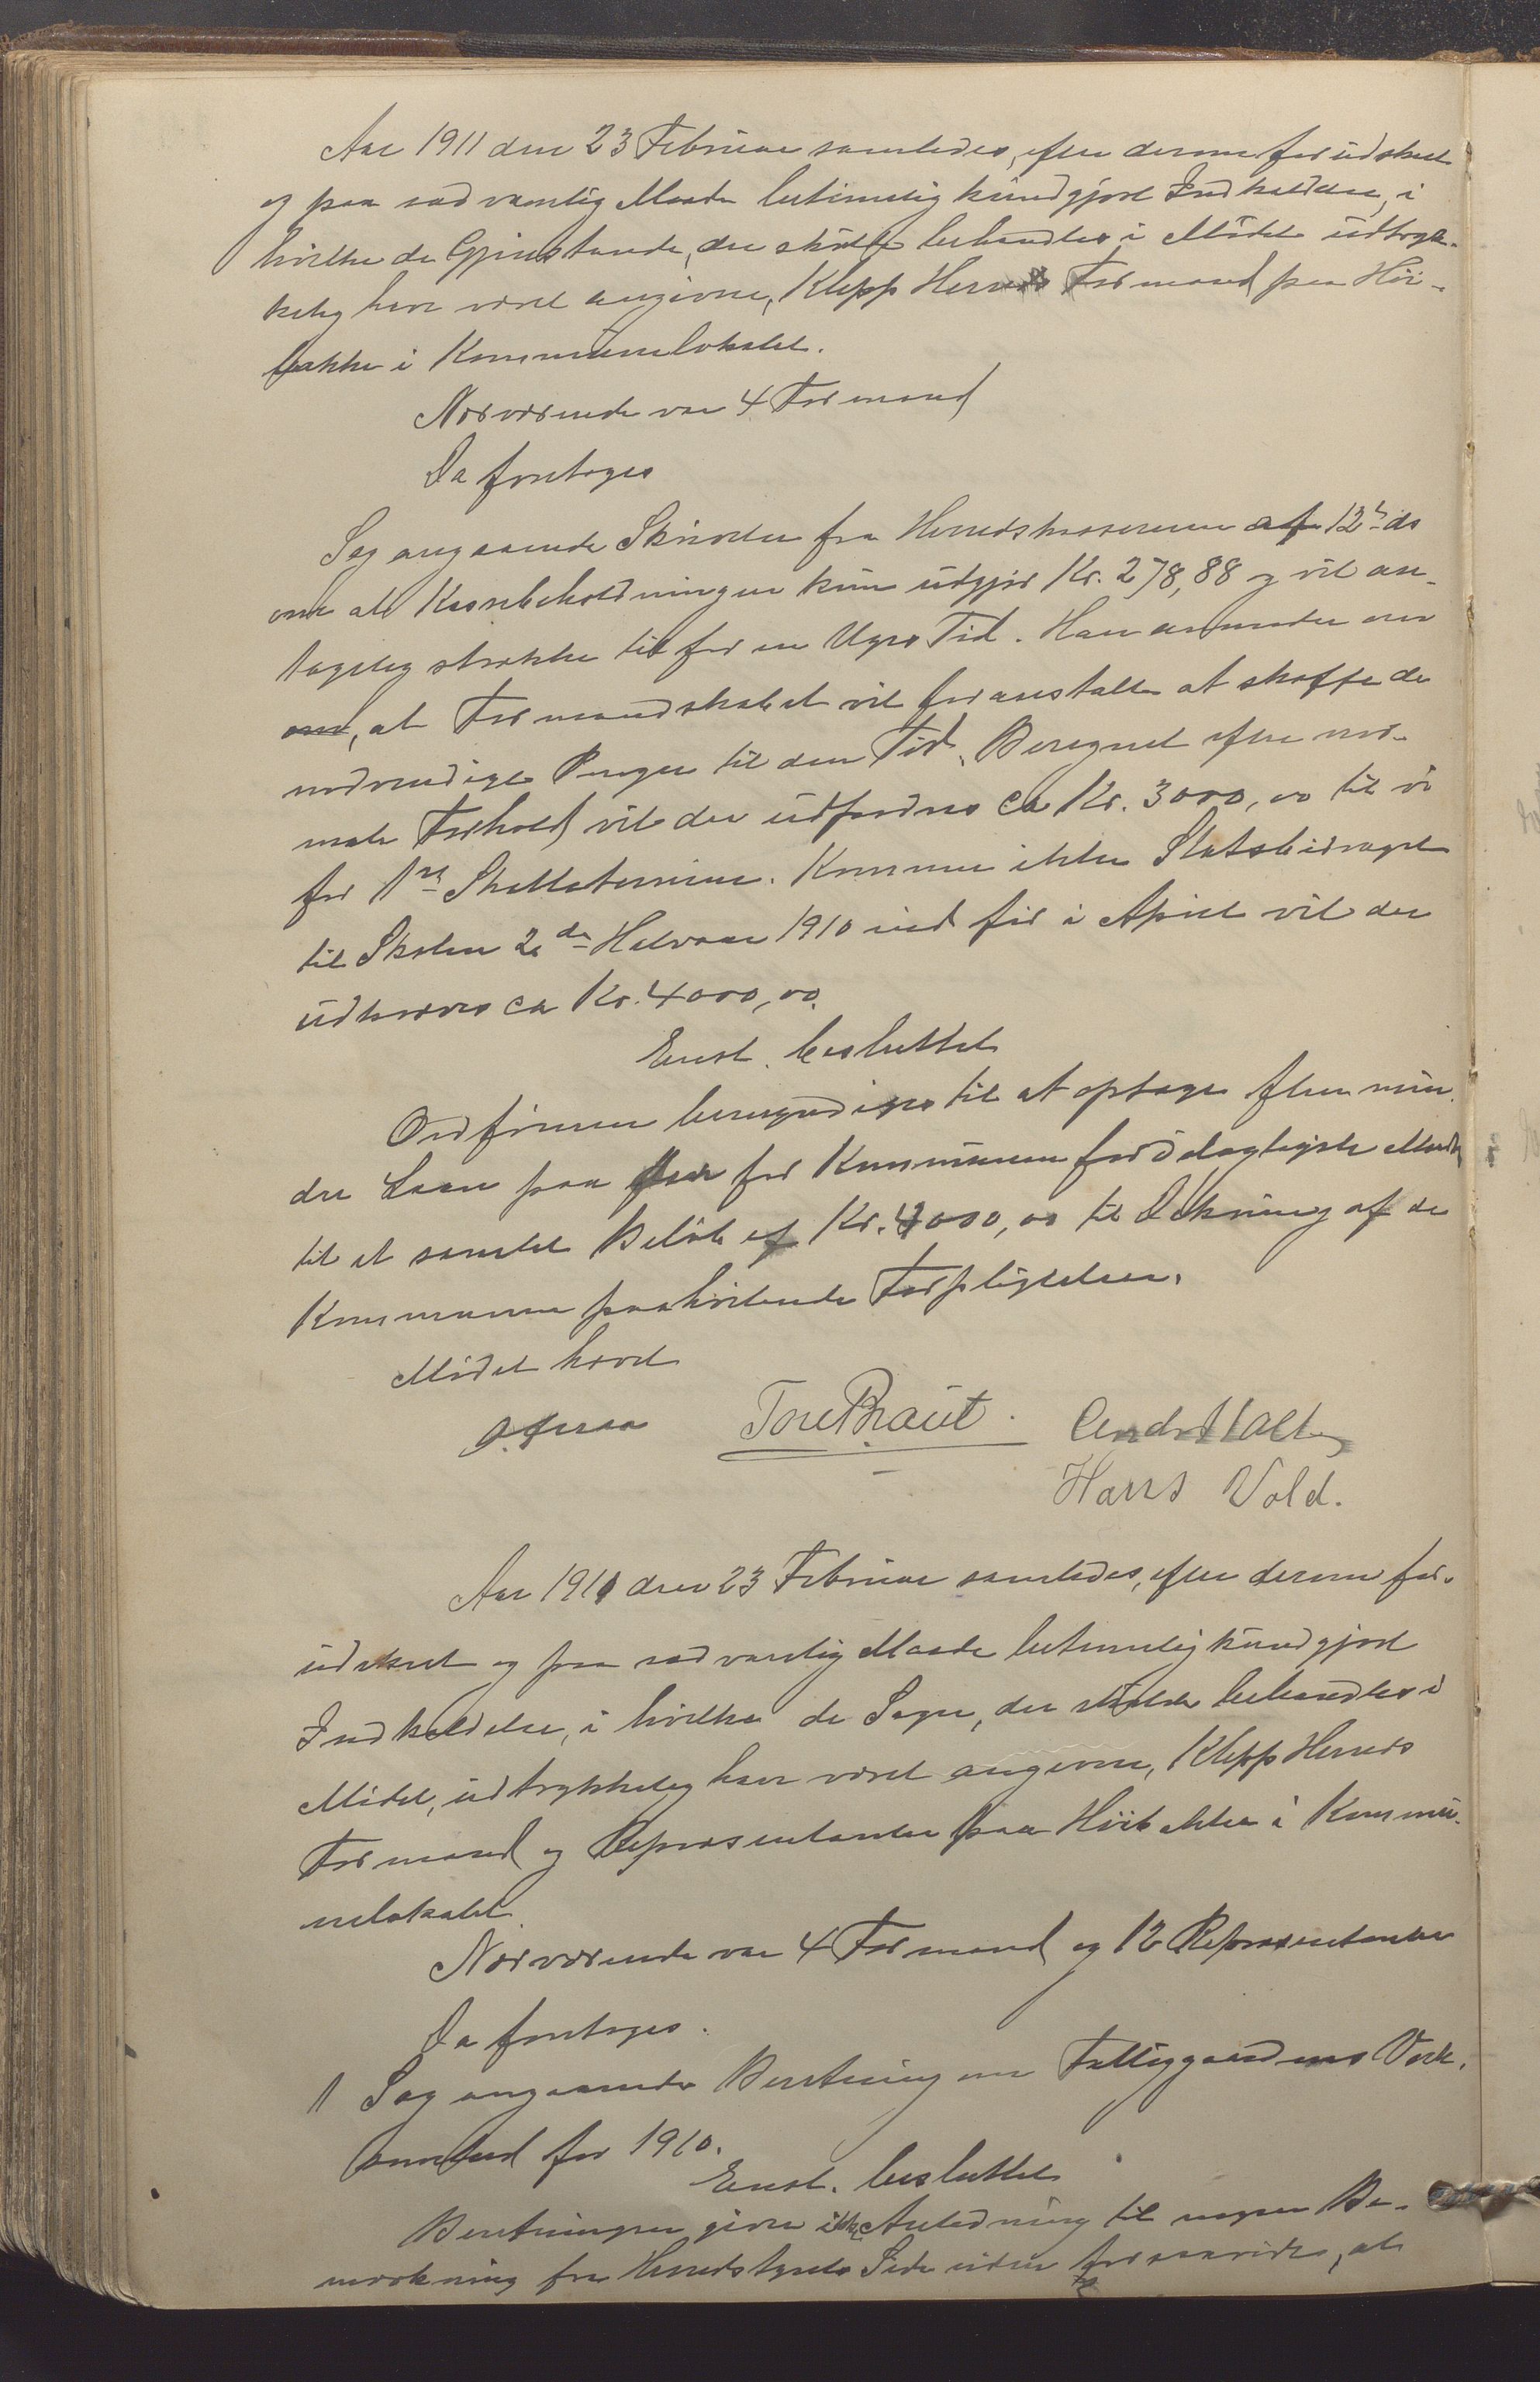 Aar 1911 den 23 Februar samledes, efter derom forudskeet
og paa sædvanlig Maade betimelig kundgjort Indkaldelse, i
hvilke de Gjenstande, der skulde behandles i Mødet udtryk-
kelig have været angivne, Klepp Herreds Formænd paa Høi-
bakke i Kommunelokalet.
Nærværende var 4 Formænd
Da foretoges
Sag angaaende Skrivelse fra Herredskassereren af 12te ds
om at Kassebeholdningen kun udgjør Kr. 278,88 og vil an-
tagelig strække til for en Uges Tid. Han anmoder om
om, at Formandskabet vil foranstalte at skaffe de
nødvendige Penger til den Tid. Beregnet efter nor-
male Forhold vil der udfordres ca Kr. 3000,00 til vi
faar 1ste Skatteterminen. Kommer ikke Statsbidraget
til Skolen 2det Halvaar 1910 ind før i April vil der
udkræves ca Kr. 4000,00.
Enst. besluttet
Ordføreren bemyndiges til at optage flere min-
dre Laan paa den for Kommunen fordelagtigste Maade
til et samlet Beløb af Kr. 4000,00 til Dekning af de
Kommunen paahvilende Forpligtelser.
Mødet hævet
Tore Braut. Andr. Walt
Hans Vold.
Aar 1911 den 23 Februar samledes, efter derom for-
udskeet og paa sædvanlig Maade betimelig kundgjort
Indkaldelse, i hvilke de Sager, der skulde behandles i
Mødet, udtrykkelig have været angivne, Klepp Herreds
Formænd og Repræsentanter paa Høibakke i Kommu-
nelokalet.
Nærværende var 4 Formænd og 12 Repræsentanter
Da foretoges.
1 Sag angaaende Beretning om Fattiggaardens Virk-
somhed for 1910.
Enst. besluttet
Beretningen giver ikke Anledning til nogen Be-
mærkning fra Herredstyrets Side uden forsaavidt, at